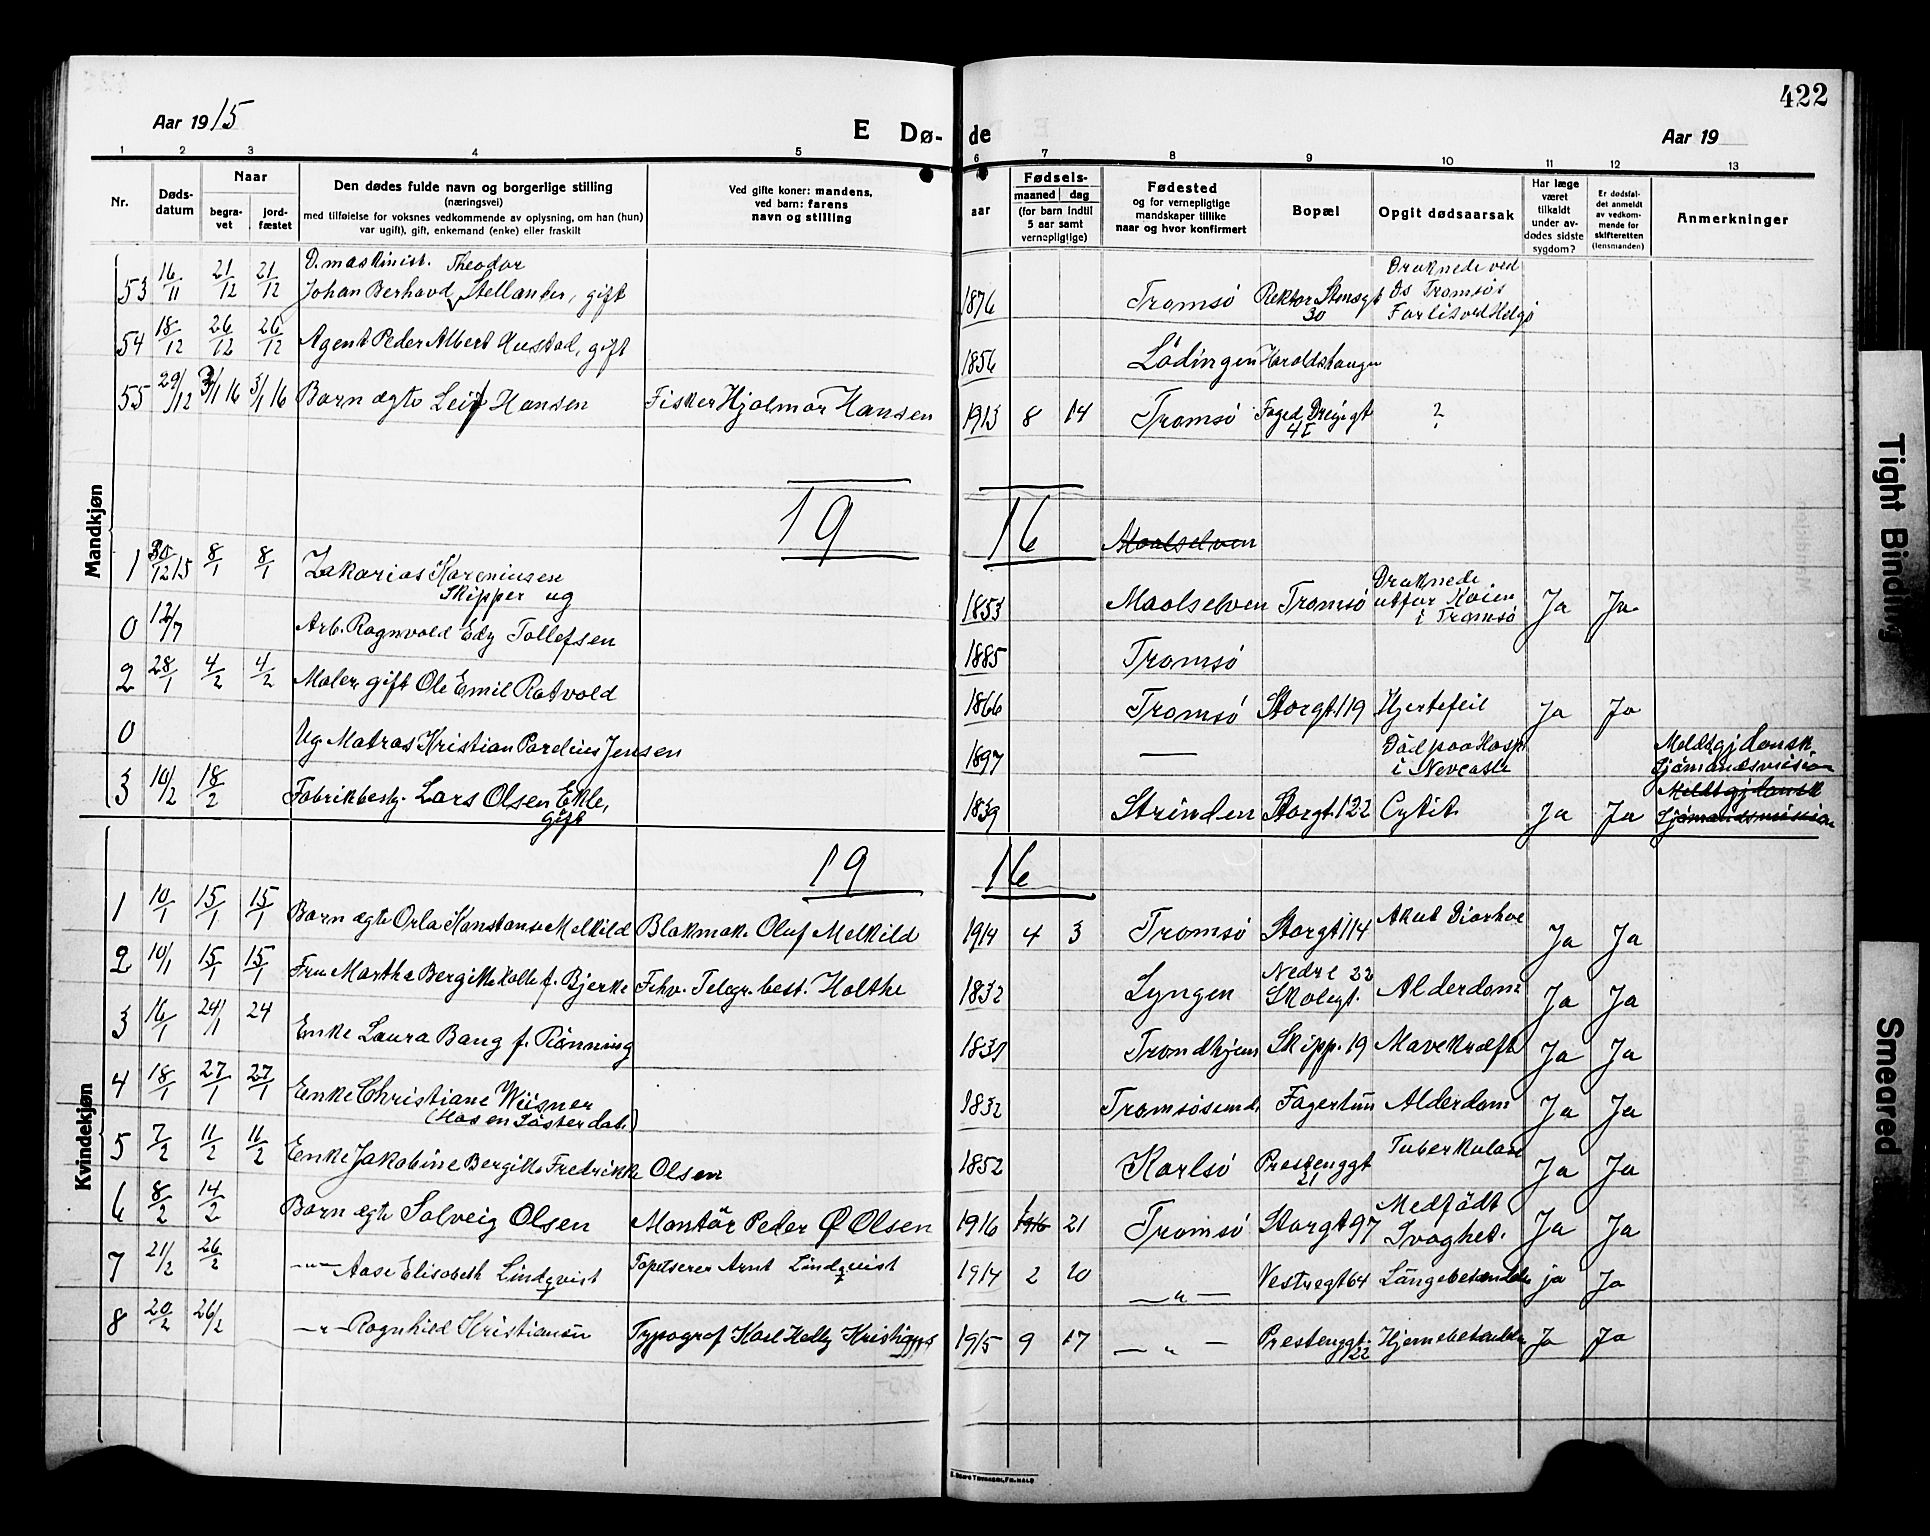 422
Aar 1915
E Dø- de
Aar 19
1 2 3 4 5 6 7 8 9 10 11 12 13
Nr.
Døds-
datum
Naar
begra-
vet
jord-
fæstet
Den dødes fulde navn og borgerlige stilling
(næringsvei)
med tilføielse for voksnes vedkommende av oplysning, om han (hun)
var ugift), gift, enkemand (enke) eller fraskilt
Ved gifte koner: mandens,
ved barn: farens
navn og stilling
aar
Fødsels-
maaned dag
(for barn indtil
5 aar samt
vernepligtige)
Fødested
og for vernepligtige
mandskaper tillike
naar og hvor konfirmert
Bopæl
Opgit dødsaarsak
Har læge
været
tilkaldt
under av-
dødes sidste
sygdom?
Er dødsfal-
det anmeldt
av vedkom-
mende for
skifteretten
(lensmanden)
Anmerkninger
Mandkjøn
D. maskinist. Theodor
53 16/11 21/12 21/12 Johan Berhavd Stellander, gift 1876 Tromsø Rektor Stensgt 30 Druknede ved Ds Tromsøs Forlis ved Helgø
54 18/12 26/12 26/12 Agent Peder Albert Hustad, gift 1856 Lödingen Haraldstangen
55 29/12 3/1 16 3/1 16 Barn ægte Leif Hansen Fisker Hjalmar Hansen 1913 8 14 Tromsø Foged Dreijegt 41 ?
19 16
Maalselven
1 30/12 15 8/1 8/1 Zakarias Kareniusen
Skipper ug 1853 Maalselven Tromsø Druknede utfor Kaien i Tromsø Ja Ja
0 12/7 Arb. Ragnvald Edy Tollefsen 1885 Tromsø
2 28/1 4/2 4/2 Maler gift Ole Emil Rotvold 1866 Tromsø Storgt. 119 Hjertefeil Ja Ja
0 Ug Matros Kristian Pardeius Jensen 1897 — Död paa Hosp. i Nevcastle Meldt gj dansk Sjömandsmision
3 10/2 18/2 Fabrikbest. Lars Olsen Ekle,
gift 1839 Strinden Storgt. 122 Cytit. Ja Ja Meldt gj dansk Sjömandsmision
19 16
Kvindekjøn
1 10/1 15/1 15/1 Barn ægte Orla Konstanse Melkild Blekmak. Oluf Melkild 1914 4 3 Tromsø Storgt 114 Akut Diarhoe Ja Ja
2 10/1 15/1 15/1 Fru Marthe Bergitte Holte f. Bjerke Fhv. Telegr. best. Holthe 1832 Lyngen Nedre Skolegt. 22 Alderdom Ja Ja
3 16/1 24/1 24 Enke Laura Bang f. Rönning 1831 Trondhjem Skipp. 19 Mavekræft Ja Ja
4 18/1 27/1 27/1 Enke Christiane Wisner
(Hos en Sösterdat.) 1832 Tromsøsund. Fagertun Alderdom Ja Ja
5 7/2 11/2 11/2 Enke Jakobine Bergitte Fredrikke Olsen 1852 Karlsö Prestenggt 21 Tuberkulose Ja Ja
6 8/2 14/2 Barn ægte Solveig Olsen Montör Peder Ø Olsen 1916 1916 21 Tromsø Storgt 97 Medfödt Svaghet. Ja Ja
7 21/2 26/2 —"— Aase Elisabeth Lindqvist Tapetserer Arnt Lindqvist 1914 2 20 —"— Vestregt 64 Lungebetændelse ja Ja
8 20/2 26/2 —"— Ragnhild Kristiansen Typograf Karl Helly Kristians 1915 9 17 —"— Prestenggt. 22 Hjernebetændelse Ja Ja
Tight Binding
Smeared